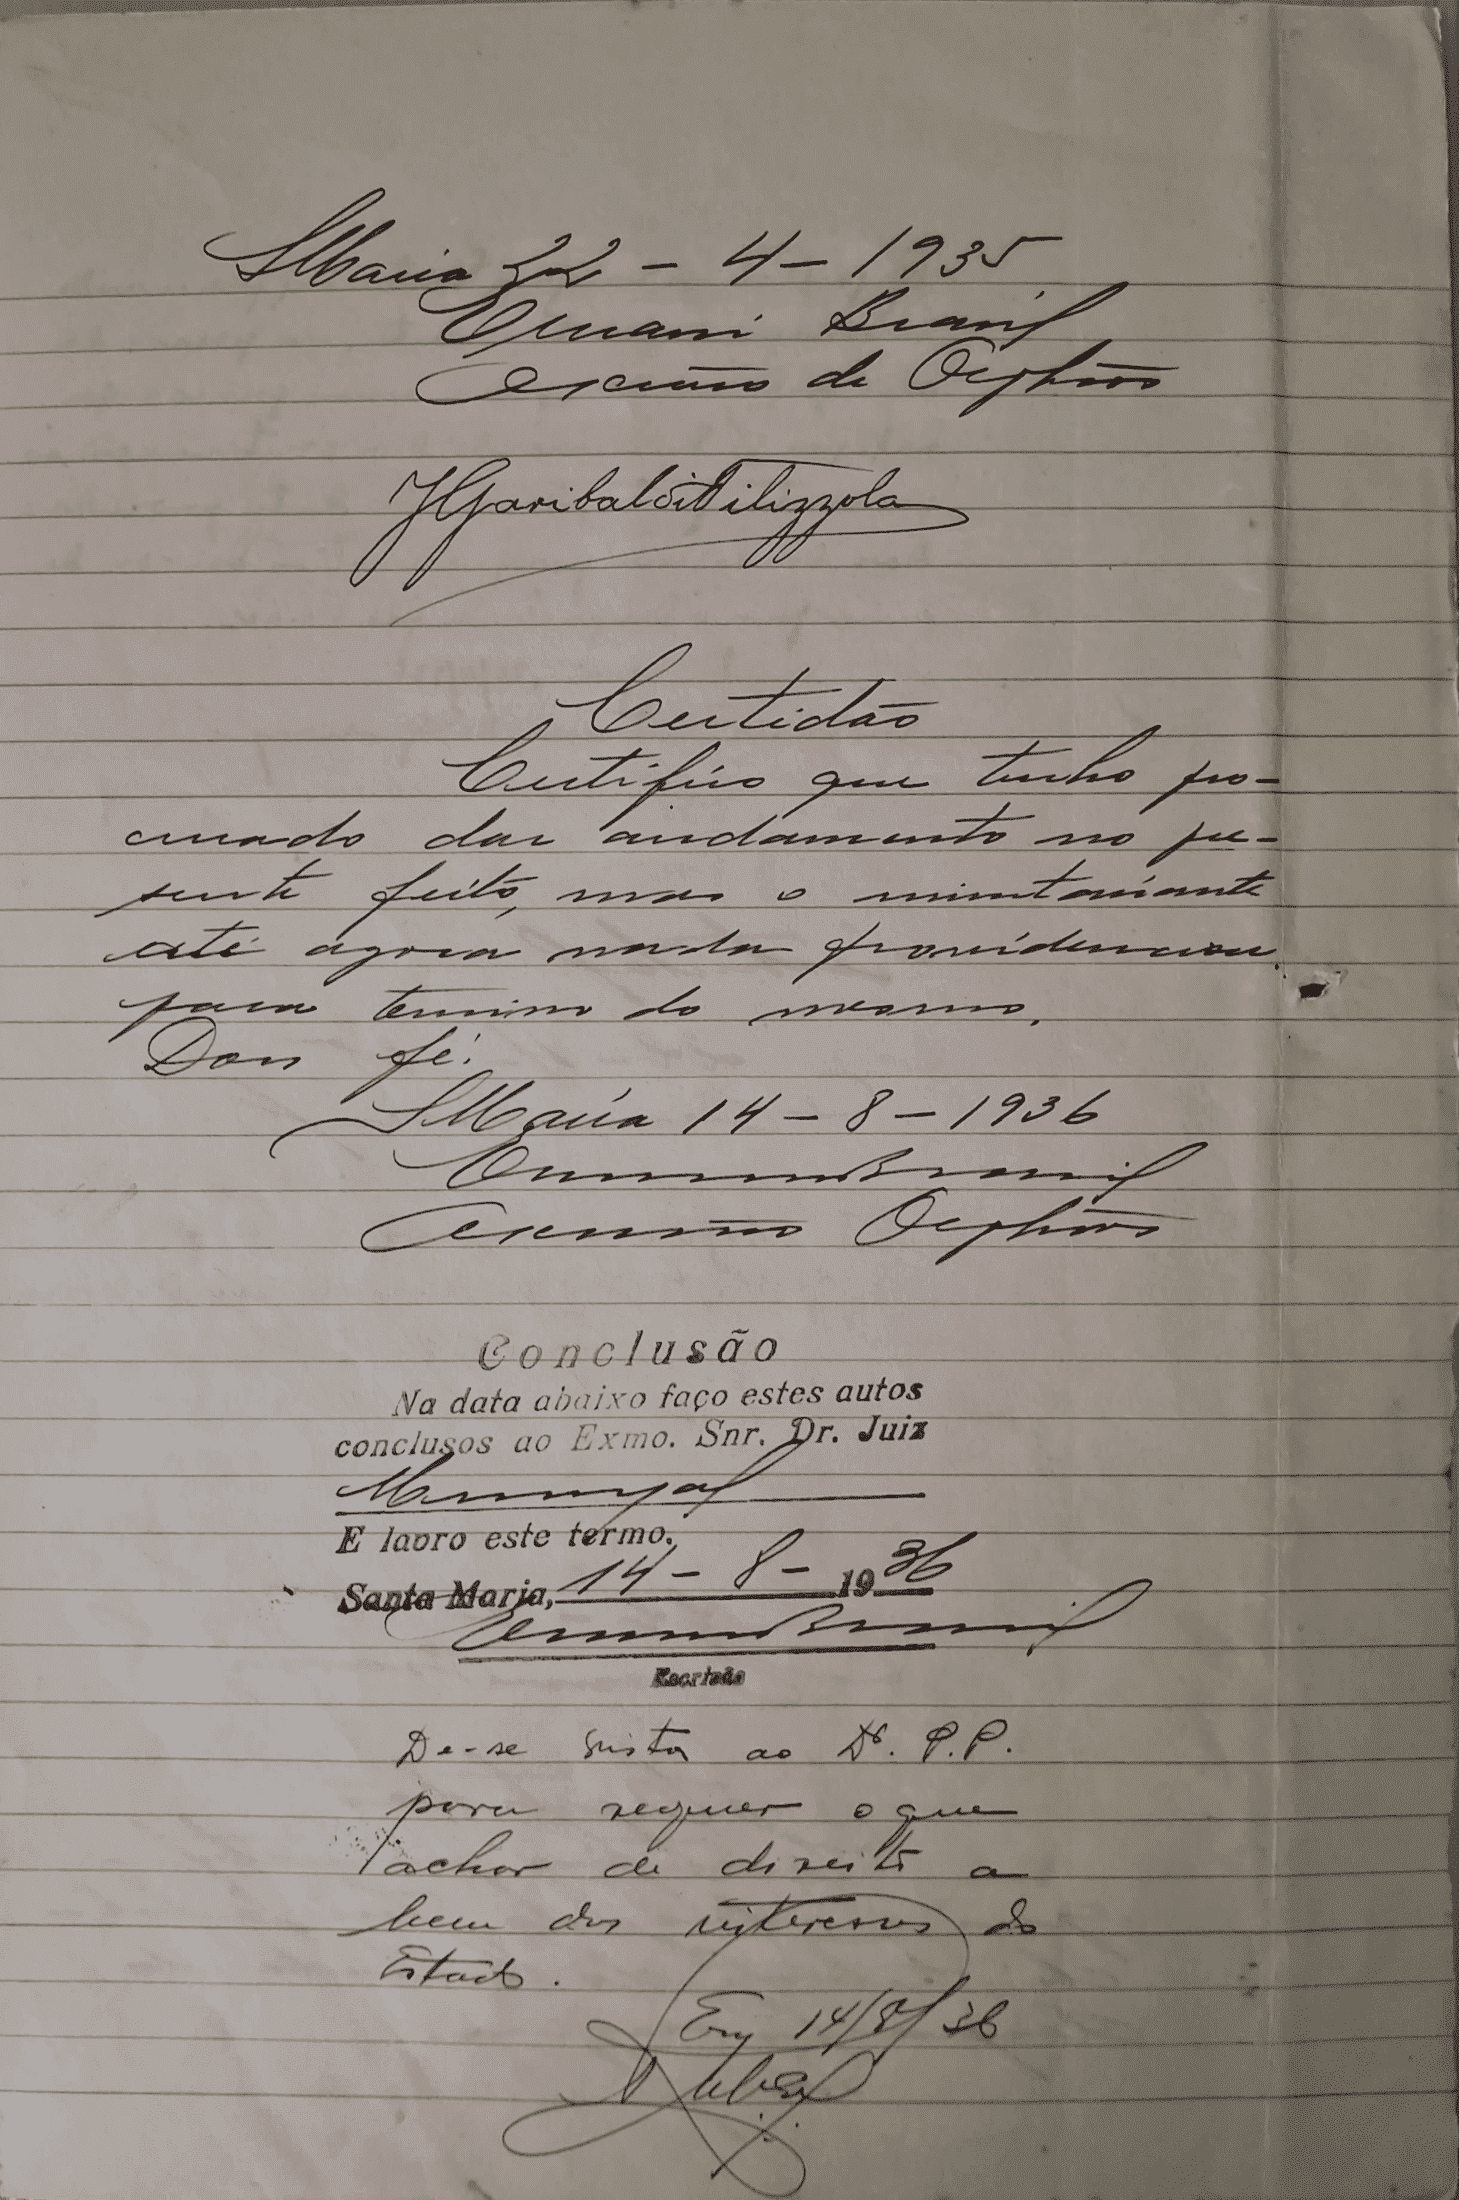 SMaria 22 - 4 - 1935
Ernani Brasil
Escrivão de Orphãos
JGaribaldi Filizzola
Certidão
Certifico que tenho pro-
curado dar andamento no pre-
sente feito, mas o inventariante
até agora nada providenciou
para termino do mesmo.
Dou fé.
SMaria 14 - 8 - 1936
Ernani Brasil
Escrivão Orphãos
Conclusão
Na data abaixo faço estes autos
conclusos ao Exmo. Snr. Dr. Juiz
Municipal
E lavro este termo.
Santa Maria, 14 - 8 - 1936
Ernani Brasil
Escrivão
De-se vista ao Dr. P.P.
para requer o que
achar de direito a
bem dos interesses do
Estado.
Em 14/8/36